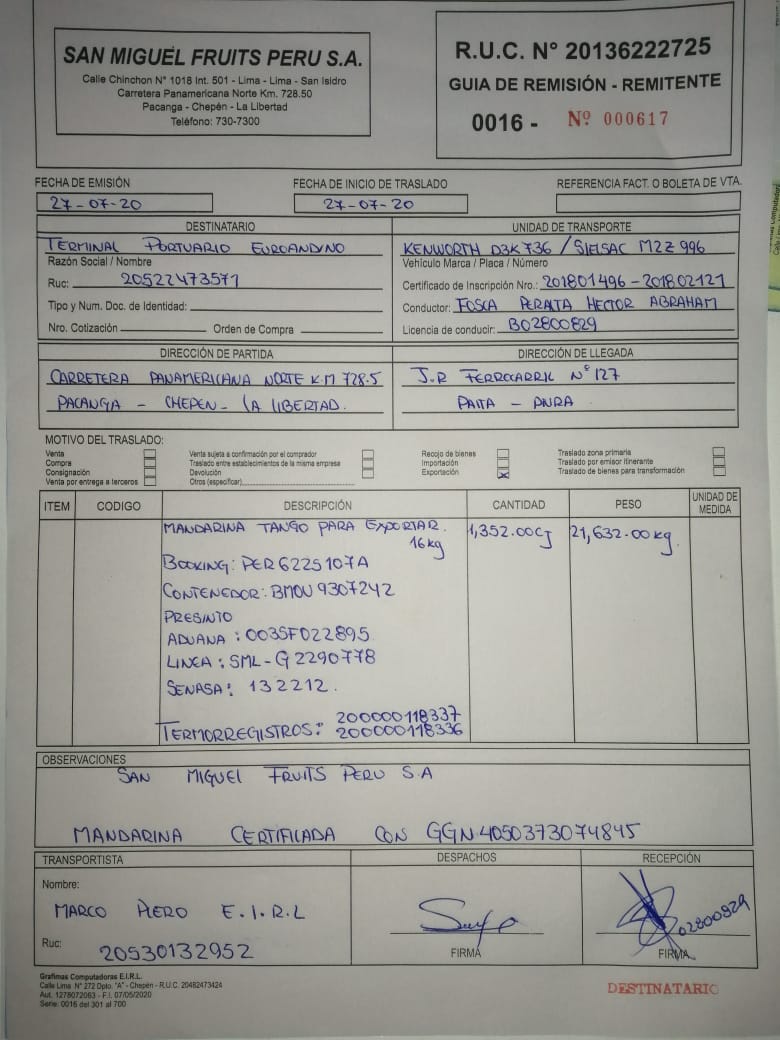 SAN MIGUEL FRUITS PERU S.A.
Calle Chinchon N° 1018 Int. 501 - Lima - Lima - San Isidro
Carretera Panamericana Norte Km. 728.50
Pacanga - Chepén - La Libertad
Teléfono: 730-7300
R.U.C. N° 20136222725
GUIA DE REMISIÓN - REMITENTE
0016 - Nº 000617
FECHA DE EMISIÓN
27-07-20
FECHA DE INICIO DE TRASLADO
27-07-20
REFERENCIA FACT. O BOLETA DE VTA.
DESTINATARIO
TERMINAL PORTUARIO EUROANDINO
Razón Social / Nombre
Ruc: 20522473571
Tipo y Num. Doc. de Identidad:
Nro. Cotización Orden de Compra
UNIDAD DE TRANSPORTE
KENWORTH D3K736 / SIELSAC M2Z 996
Vehículo Marca / Placa / Número
Certificado de Inscripción Nro.: 201801496 - 201802121
Conductor: FOSCA PERALTA HECTOR ABRAHAM
Licencia de conducir: B02800829
DIRECCIÓN DE PARTIDA
CARRETERA PANAMERICANA NORTE K.M 728.5
PACANGA - CHEPEN - LA LIBERTAD.
DIRECCIÓN DE LLEGADA
J.R FERROCARRIL N° 127
PAITA - PIURA
MOTIVO DEL TRASLADO:
Venta
Compra
Consignación
Venta por entrega a terceros
Venta sujeta a confirmación por el comprador
Traslado entre establecimientos de la misma empresa
Devolución
Otros (especificar)
Recojo de bienes
Importación
Exportación X
Traslado zona primaria
Traslado por emisor itinerante
Traslado de bienes para transformación
ITEM CODIGO DESCRIPCIÓN CANTIDAD PESO UNIDAD DE MEDIDA
MANDARINA TANGO PARA EXPORTAR. 1,352.00CJ 21,632.00kg.
16kg
BOOKING: PER6225107A
CONTENEDOR: BMOU 9307242
PRESINTO
ADUANA: 003SF022895
LINEA: SML-G2290778
SENASA: 132212.
TERMORREGISTROS: 200000118337
200000118336
OBSERVACIONES
SAN MIGUEL FRUITS PERU S.A
MANDARINA CERTIFICADA CON GGN 4050373074845
TRANSPORTISTA
Nombre:
MARCO PIERO E.I.R.L
Ruc: 20530132952
DESPACHOS
FIRMA
RECEPCIÓN
02800829
FIRMA
Grafimas Computadoras E.I.R.L.
Calle Lima N° 272 Dpto. "A" - Chepén - R.U.C. 20482473424
Aut. 1278072063 - F.I. 07/05/2020
Serie: 0016 del 301 al 700
DESTINATARIO